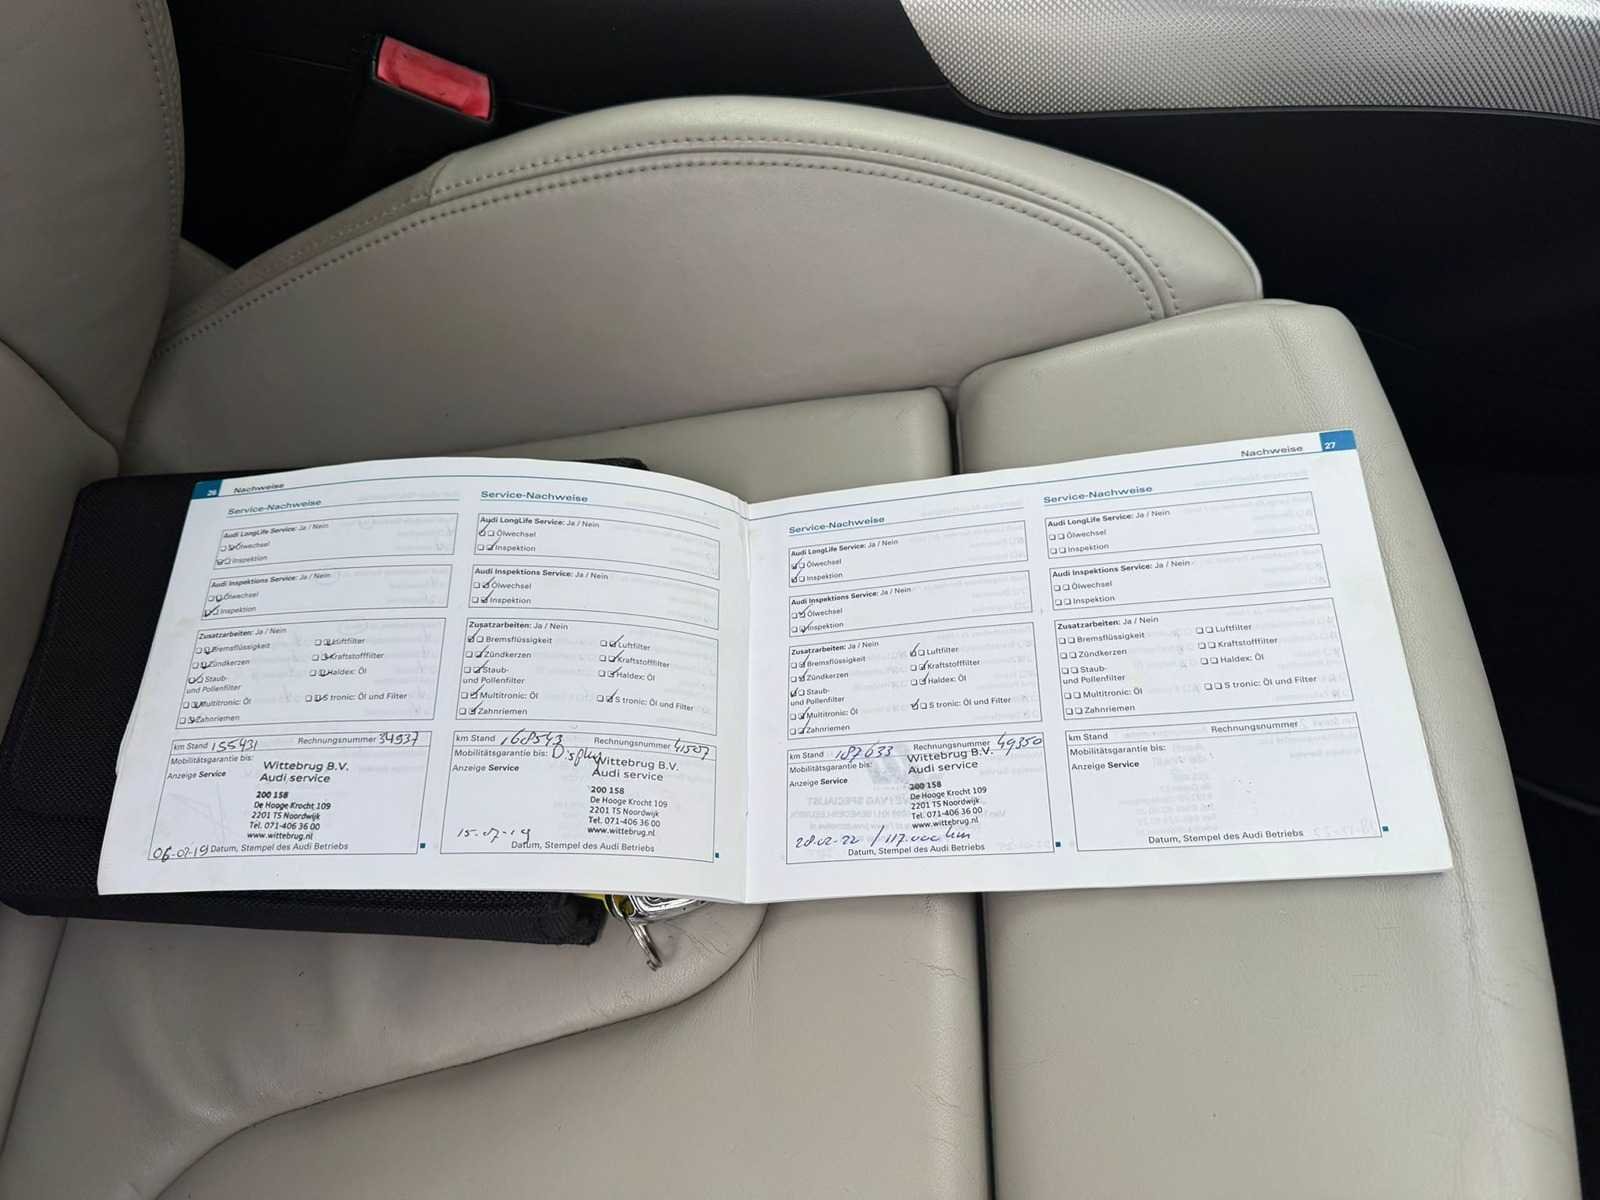 26 Nachweise
Service-Nachweise
Audi LongLife Service: Ja / Nein
Ölwechsel
Inspektion
Audi Inspektions Service: Ja / Nein
Ölwechsel
Inspektion
Zusatzarbeiten: Ja / Nein
Bremsflüssigkeit Luftfilter
Zündkerzen Kraftstofffilter
Staub- Haldex: Öl
und Pollenfilter
Multitronic: Öl S tronic: Öl und Filter
Zahnriemen
km Stand 155431 Rechnungsnummer 34937
Mobilitätsgarantie bis:
Anzeige Service
Wittebrug B.V.
Audi service
200 158
De Hooge Krocht 109
2201 TS Noordwijk
Tel. 071-406 36 00
www.wittebrug.nl
06-02-19 Datum, Stempel des Audi Betriebs
Service-Nachweise
Audi LongLife Service: Ja / Nein
Ölwechsel
Inspektion
Audi Inspektions Service: Ja / Nein
Ölwechsel
Inspektion
Zusatzarbeiten: Ja / Nein
Bremsflüssigkeit Luftfilter
Zündkerzen Kraftstofffilter
Staub- Haldex: Öl
und Pollenfilter
Multitronic: Öl S tronic: Öl und Filter
Zahnriemen
km Stand 168543 Rechnungsnummer 41507
Mobilitätsgarantie bis:
Anzeige Service
Wittebrug B.V.
Audi service
200 158
De Hooge Krocht 109
2201 TS Noordwijk
Tel. 071-406 36 00
www.wittebrug.nl
15-07-19
Datum, Stempel des Audi Betriebs
Nachweise 27
Service-Nachweise
Audi LongLife Service: Ja / Nein
Ölwechsel
Inspektion
Audi Inspektions Service: Ja / Nein
Ölwechsel
Inspektion
Zusatzarbeiten: Ja / Nein
Bremsflüssigkeit Luftfilter
Zündkerzen Kraftstofffilter
Staub- Haldex: Öl
und Pollenfilter
Multitronic: Öl S tronic: Öl und Filter
Zahnriemen
km Stand 187633 Rechnungsnummer 49350
Mobilitätsgarantie bis:
Anzeige Service
Wittebrug B.V.
Audi service
200 158
De Hooge Krocht 109
2201 TS Noordwijk
Tel. 071-406 36 00
www.wittebrug.nl
28-02-22 / 117.000 km
Datum, Stempel des Audi Betriebs
Service-Nachweise
Audi LongLife Service: Ja / Nein
Ölwechsel
Inspektion
Audi Inspektions Service: Ja / Nein
Ölwechsel
Inspektion
Zusatzarbeiten: Ja / Nein
Bremsflüssigkeit Luftfilter
Zündkerzen Kraftstofffilter
Staub- Haldex: Öl
und Pollenfilter
Multitronic: Öl S tronic: Öl und Filter
Zahnriemen
km Stand Rechnungsnummer
Mobilitätsgarantie bis:
Anzeige Service
Datum, Stempel des Audi Betriebs